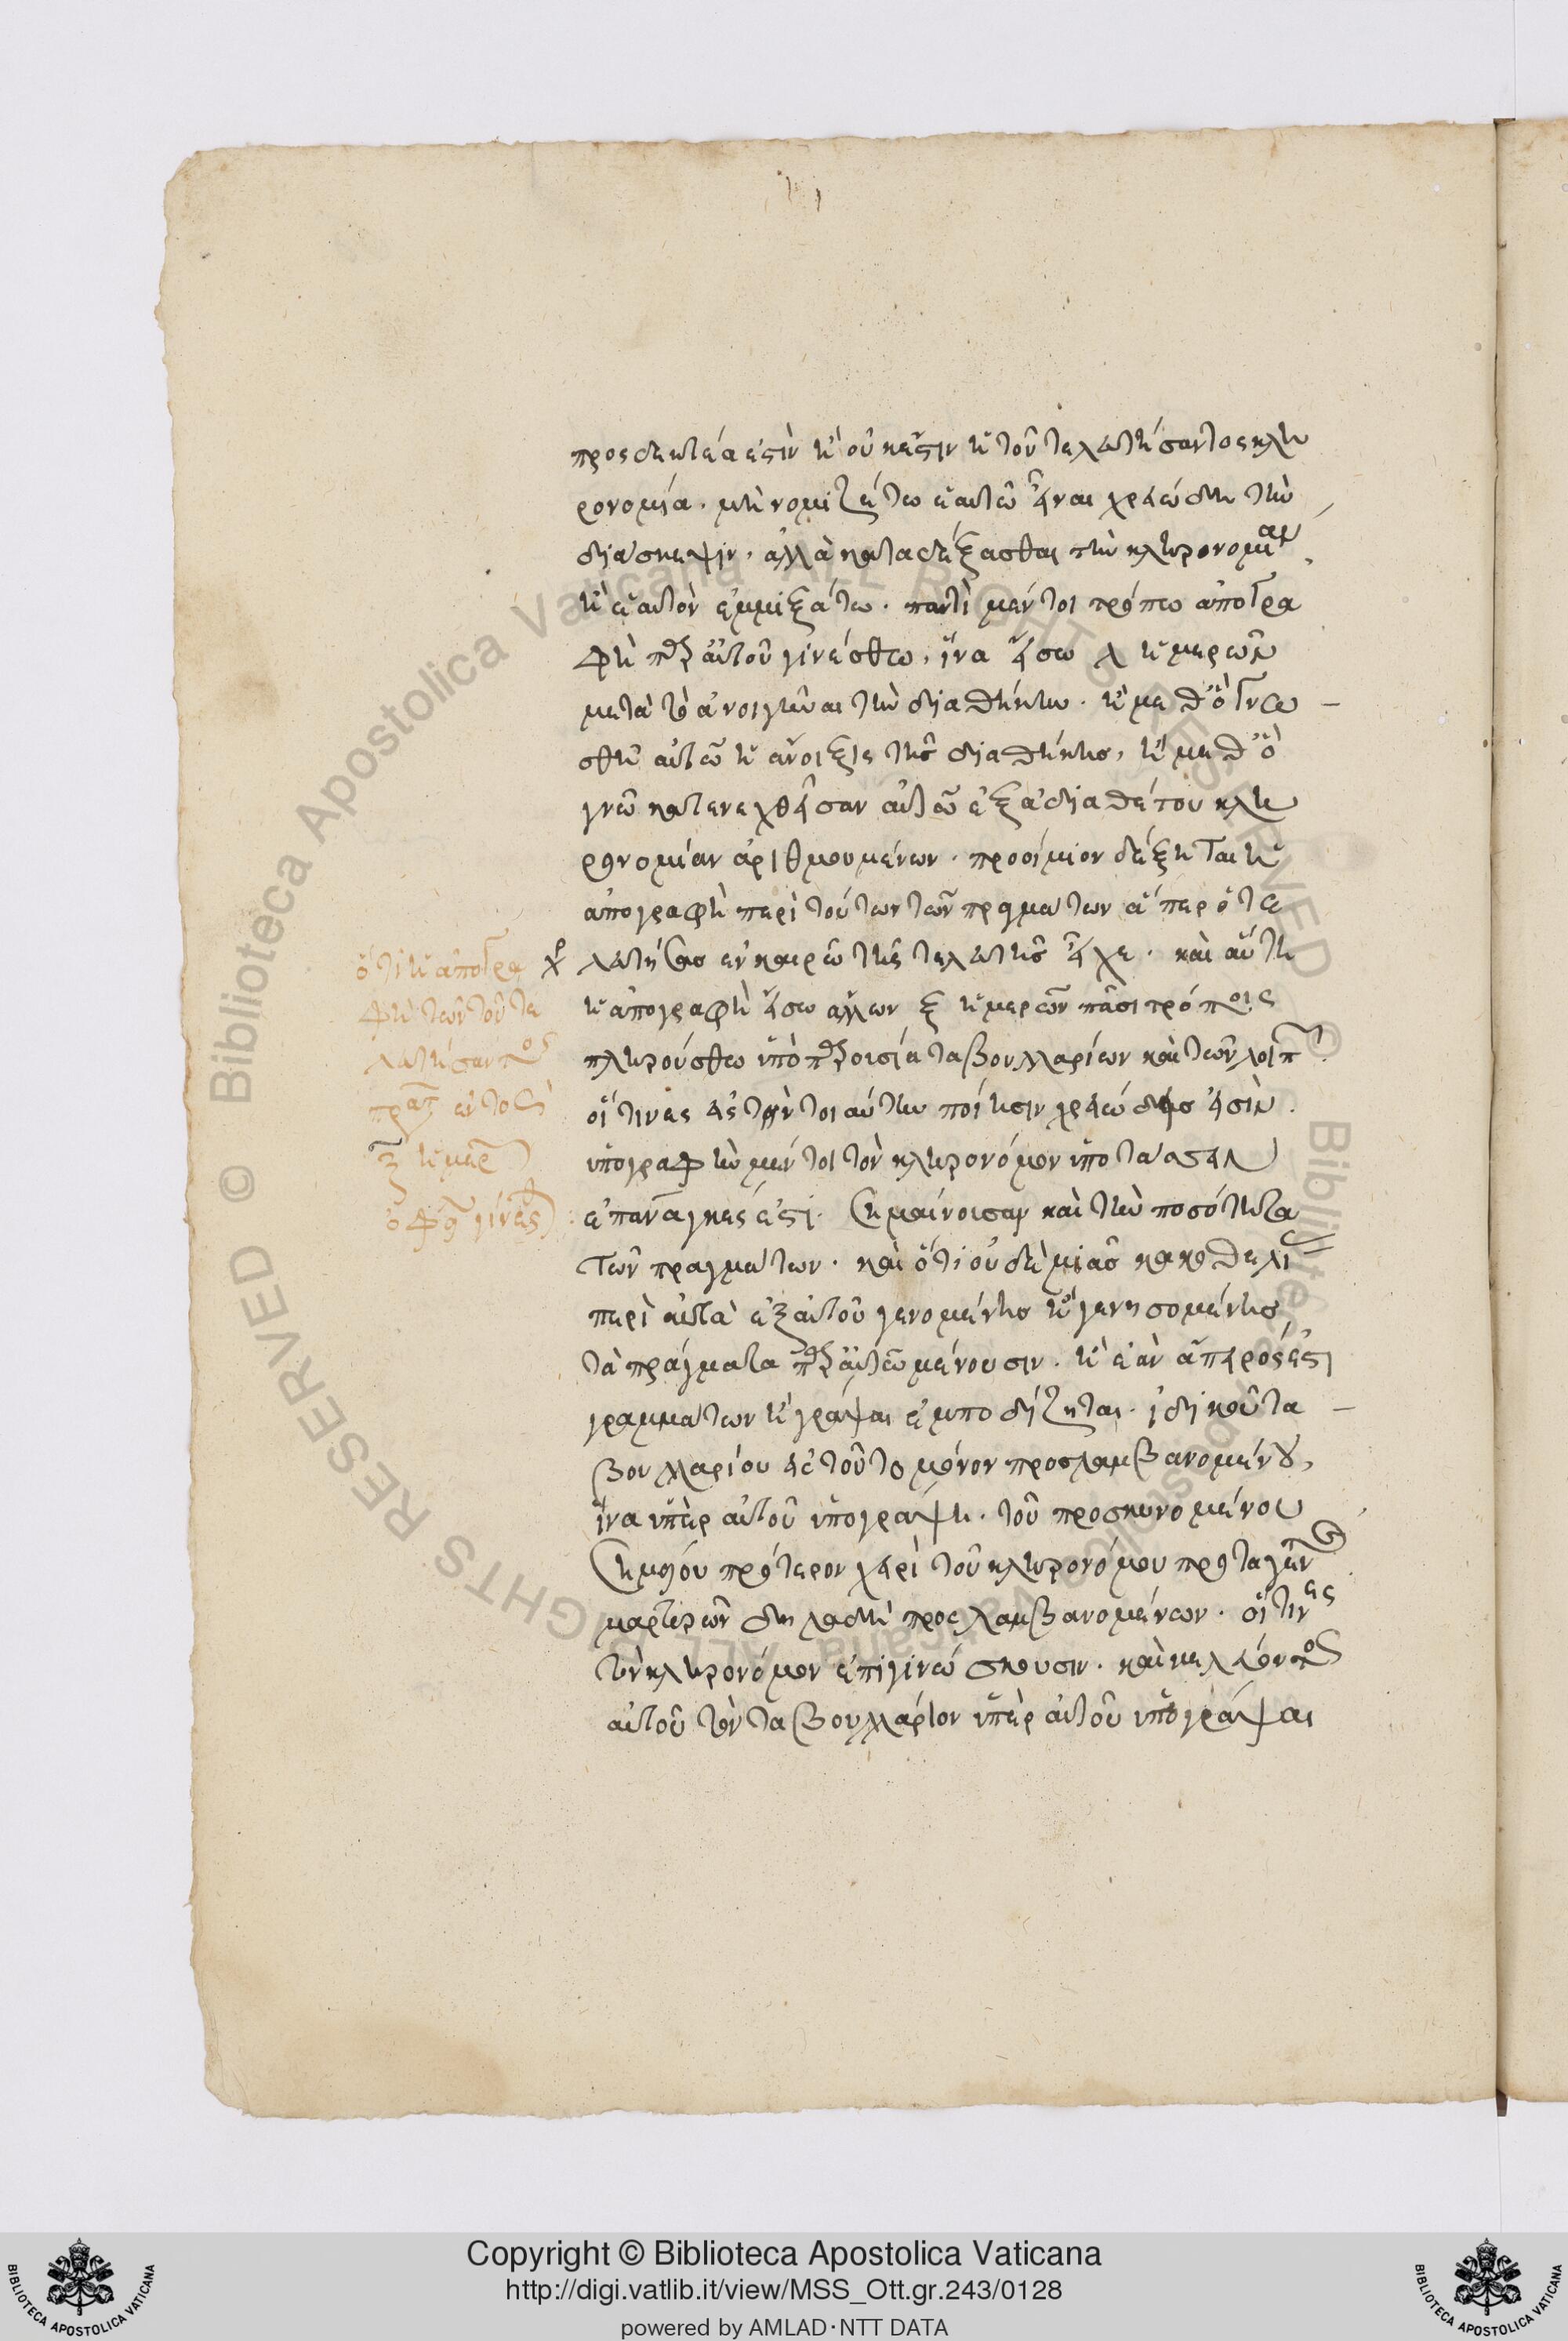 προσδεκτέα ἐστὶν ἢ οὐκ ἔστιν ἡ τοῦ τελευτήσαντος κλη
ρονομία. μὴ νομιζέτω ἑαυτῶ εἶναι χρεώδη τὴν
διάσκεψιν, ἀλλὰ καταδέξασθαι τὴν κληρονομίαν,
ἢ ἑαυτὸν ἐμμιξάτω. παντὶ μέντοι τρόπω ἀπογρα
φὴ παρ' αὐτοῦ γινέσθω, ἵνα εἴσω λ ἡμερῶν
μετὰ τὸ ἀνοιγῆναι τὴν διαθήκην. ἢ μεθ' ὃ γνω
σθῆ αὐτῶ ἡ ἄνοιξις τῆς διαθήκης, ἢ μεθ' ὃ
γνῶ κατενεχθεῖσαν αὐτῶ ἐξ ἀδιαθέτου κλη
ρονομίαν ἀριθμουμένων. προοίμιον δέξηται ἡ
ἀπογραφὴ περὶ τούτων τῶν πραγμάτων ἅπερ ὁ τε
λευτήσας ἐν καιρῶ τῆς τελευτῆς εἶχε. καὶ αὕτη
ἡ ἀπογραφὴ εἴσω ἄλλων ξ ἡμερῶν πᾶσι τρόποις
πληρούσθω ὑπὸ παρουσία ταβουλλαρίων καὶ τῶν λοιπ
οἵτινες εἰς τὴν τοιαύτην ποίησιν χρεώδεις εἰσὶν.
ὑπογραφὴν μέντοι τὸν κληρονόμον ὑποτάσσειν
ἐπάναγκες ἐστι. σημαίνουσαν καὶ τὴν ποσότητα
τῶν πραγμάτων. καὶ ὅτι οὐδεμιᾶς κακοθελεί
περὶ αὐτὰ ἐξ αὐτοῦ γενομένης ἢ γενησομένης
τὰ πράγματα παρ' αὐτῶ μένουσιν. ἢ ἐὰν ἄπειρός ἐστι
γραμμάτων ἢ γράψαι ἐμποδίζηται. ἰδικοῦ τα
βουλλαρίου εἰς τοῦτο μόνον προσλαμβανομένου,
ἵνα ὑπὲρ αὐτοῦ ὑπογράψη. τοῦ προσκυνομένου
σημείου πρότερον χειρὶ τοῦ κληρονόμου προταγέντος
μαρτύρων δηλαδὴ προσλαμβανομένων. οἵτινες
τὸν κληρονόμον ἐπιγινώσκουσιν. καὶ κελεύοντος
αὐτοῦ τὸν ταβουλλάριον ὑπὲρ αὐτοῦ ὑπογράψαι
ὅτι ἡ ἀπογρα
φὴ τῶν τοῦ τε
λευτήσαντος
πραγμάτων ἐντὸς
ἡμερ
Copyright © Biblioteca Apostolica Vaticana
http://digi.vatlib.it/view/MSS_Ott.gr.243/0128
powered by AMLAD·NTT DATA